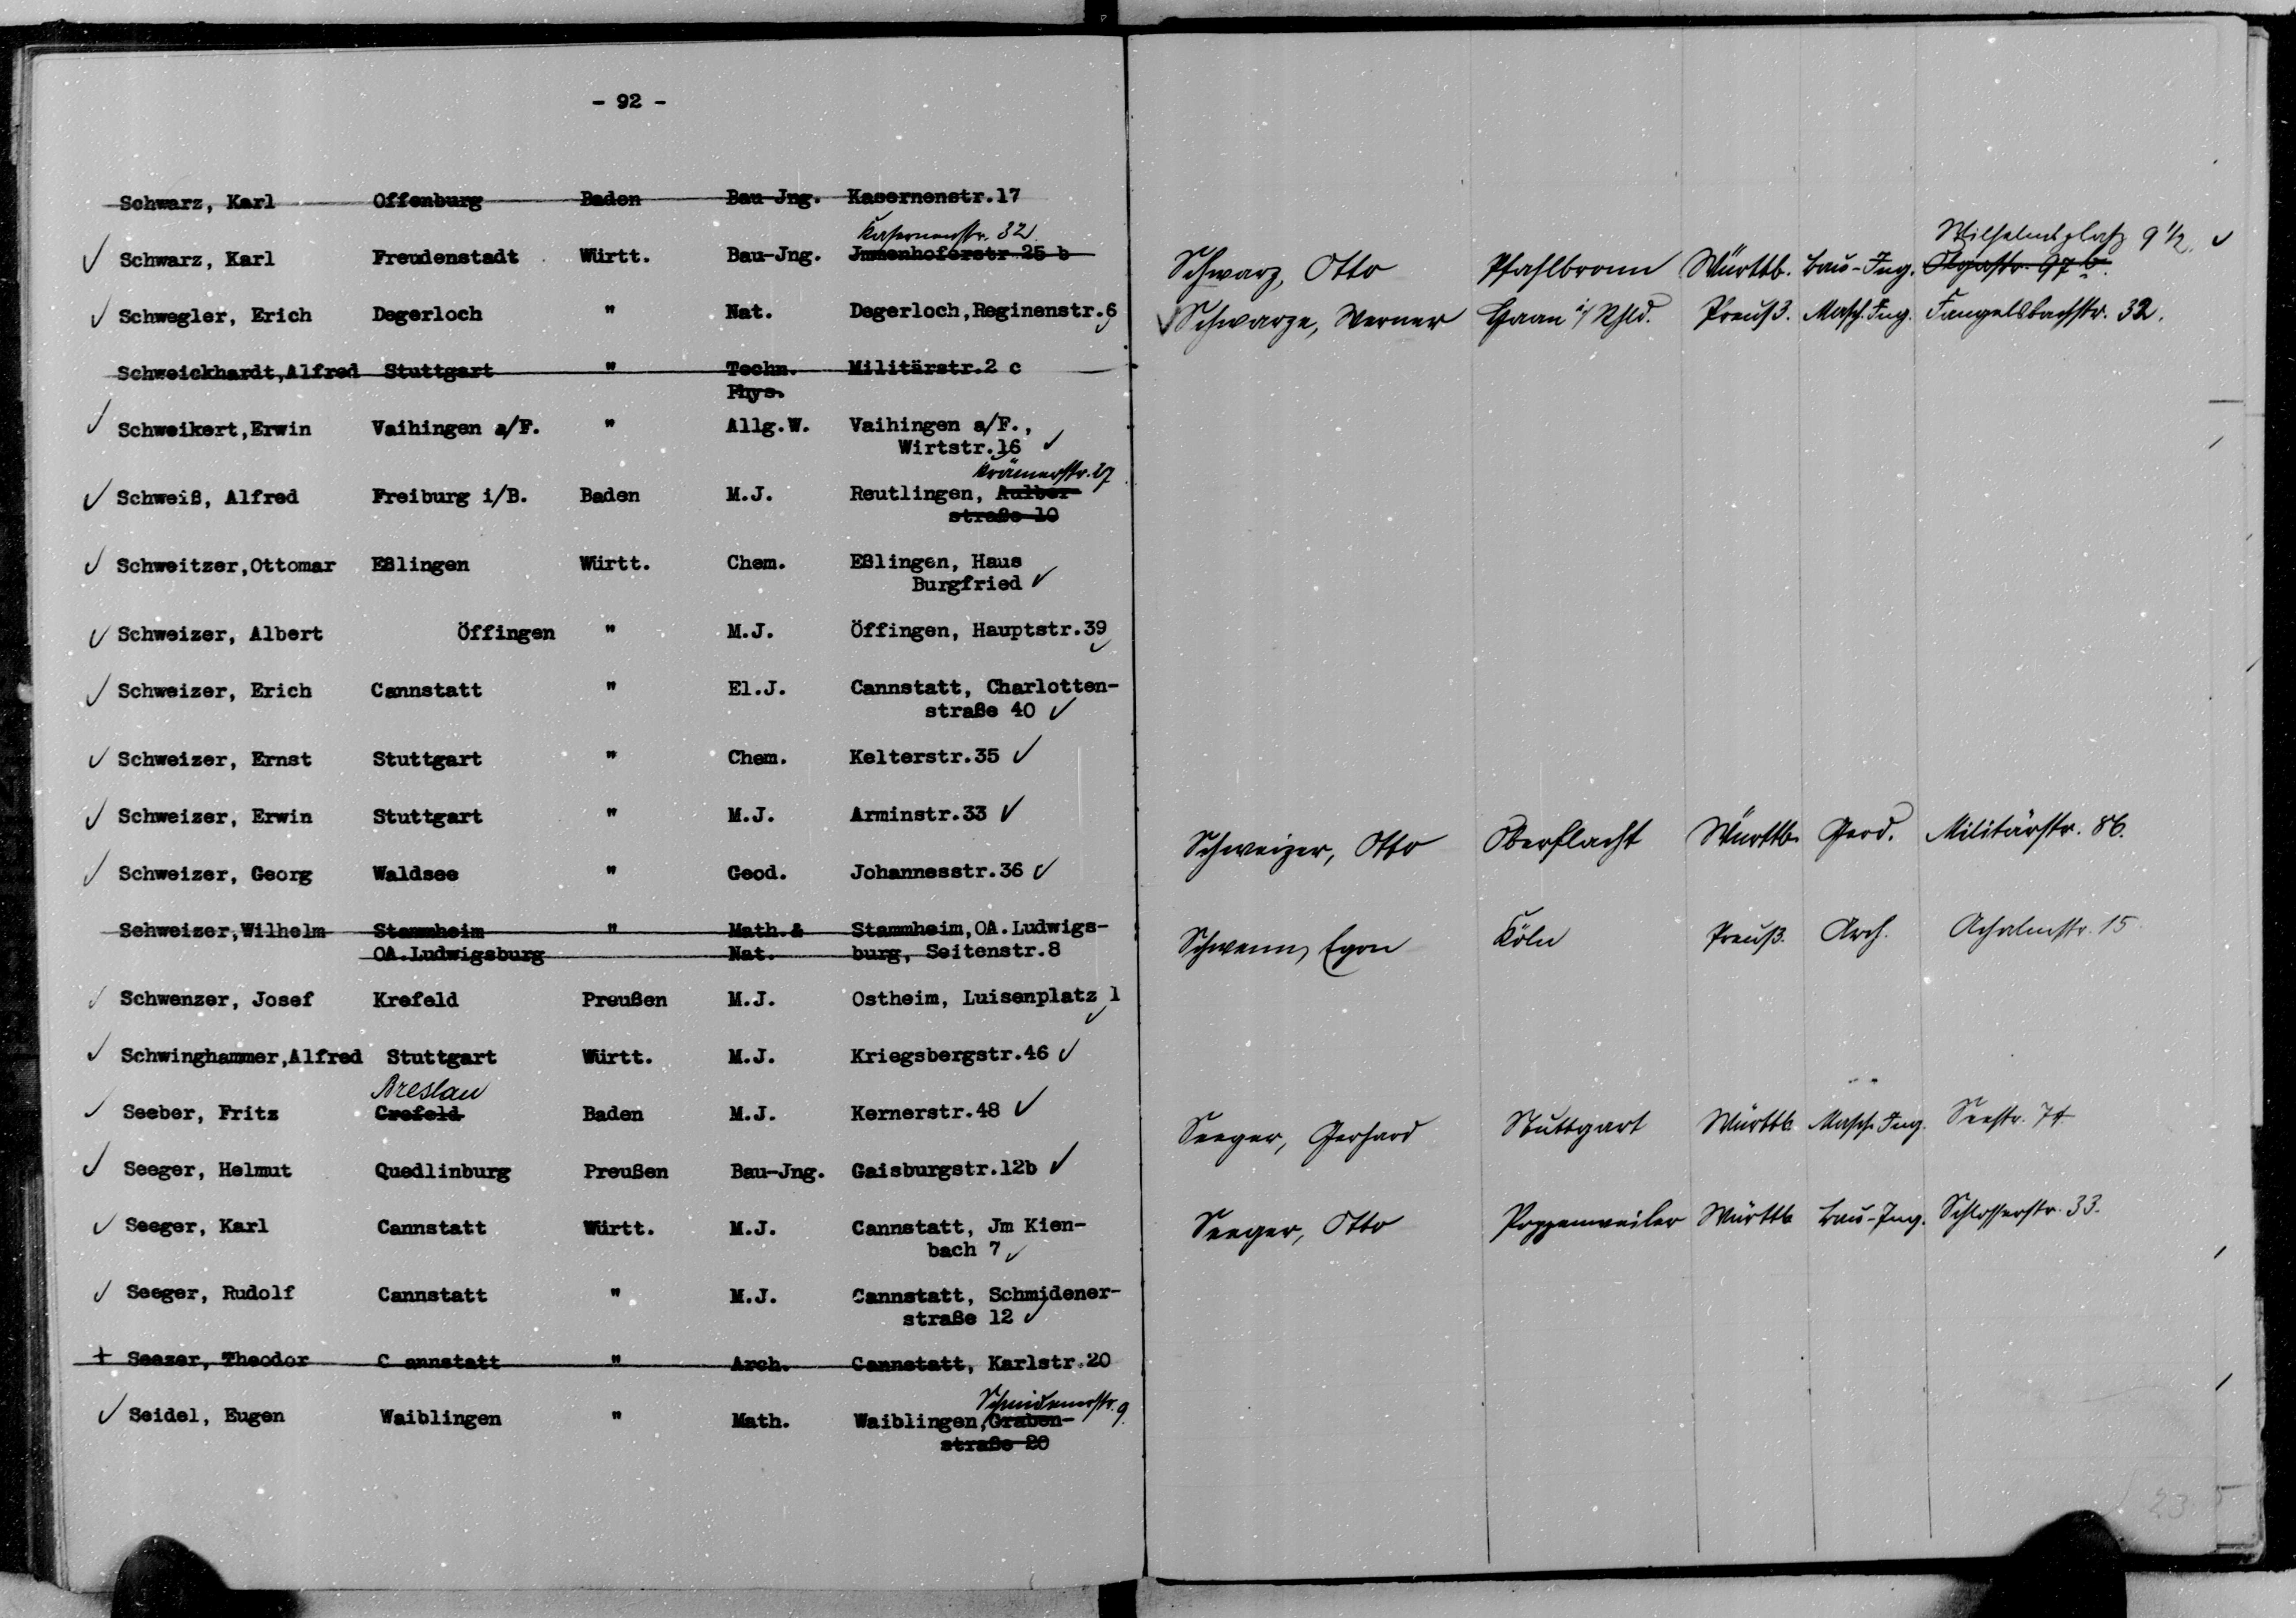 - 92 -
Schwarz, Karl Offenburg Baden Bau-Jng. Kasernenstr.17
Kasernenstr. 32
Schwarz, Karl Freudenstadt Württ. Bau-Jng. Jmmenhoferstr 25 b
Schwegler, Erich Degerloch " Nat. Degerloch,Reginenstr.6
Schweickhardt,Alfred Stuttgart " Techn. Militärstr.2 c
Phys.
Schweikert,Erwin Vaihingen a/F. " Allg.W. Vaihingen a/F.,
Wirtstr.16
Krämerstr. 27
Schweiß, Alfred Freiburg i/B. Baden M.J. Reutlingen, Aulber-
straße 10
Schweitzer,Ottomar Eßlingen Württ. Chem. Eßlingen, Haus
Burgfried
Schweizer, Albert Öffingen " M.J. Öffingen, Hauptstr.39
Schweizer, Erich Cannstatt " El.J. Cannstatt, Charlotten-
straße 40
Schweizer, Ernst Stuttgart " Chem. Kelterstr.35
Schweizer, Erwin Stuttgart " M.J. Arminstr.33
Schweizer, Georg Waldsee " Geod. Johannesstr.36
Schweizer,Wilhelm Stammheim " Math.& Stammheim,OA.Ludwigs-
OA.Ludwigsburg Nat. burg, Seitenstr.8
Schwenzer, Josef Krefeld Preußen M.J. Ostheim, Luisenplatz 1
Schwinghammer,Alfred Stuttgart Württ. M.J. Kriegsbergstr.46
Breslau
Seeber, Fritz Crefeld Baden M.J. Kernerstr.48
Seeger, Helmut Quedlinburg Preußen Bau-Jng. Gaisburgstr.12b
Seeger, Karl Cannstatt Württ. M.J. Cannstatt, Jm Kien-
bach 7
Seeger, Rudolf Cannstatt " M.J. Cannstatt, Schmidener-
straße 12
+ Seezer, Theodor C annstatt " Arch. Cannstatt, Karlstr.20
Schmidenerstr. 9
Seidel, Eugen Waiblingen " Math. Waiblingen,Graben-
straße 20
Wilhelmsplatz 9 1/2
Schwarz, Otto Pfahlbronn Württb. Bau-Ing. Olgastr. 97 b.
Schwarze, Werner Haan i/Rhld. Preuß. Masch. Ing. Fangelsbachstr. 32.
Schweizer, Otto Oberflacht Württb. Geod. Militärstr. 86.
Schwenn, Egon Köln Preuß. Arch. Achalmstr. 15
Seeger, Gerhard Stuttgart Württb. Masch. Ing. Seestr. 74
Seeger, Otto Poppenweiler Württb. Bau-Ing. Schlosserstr. 33.